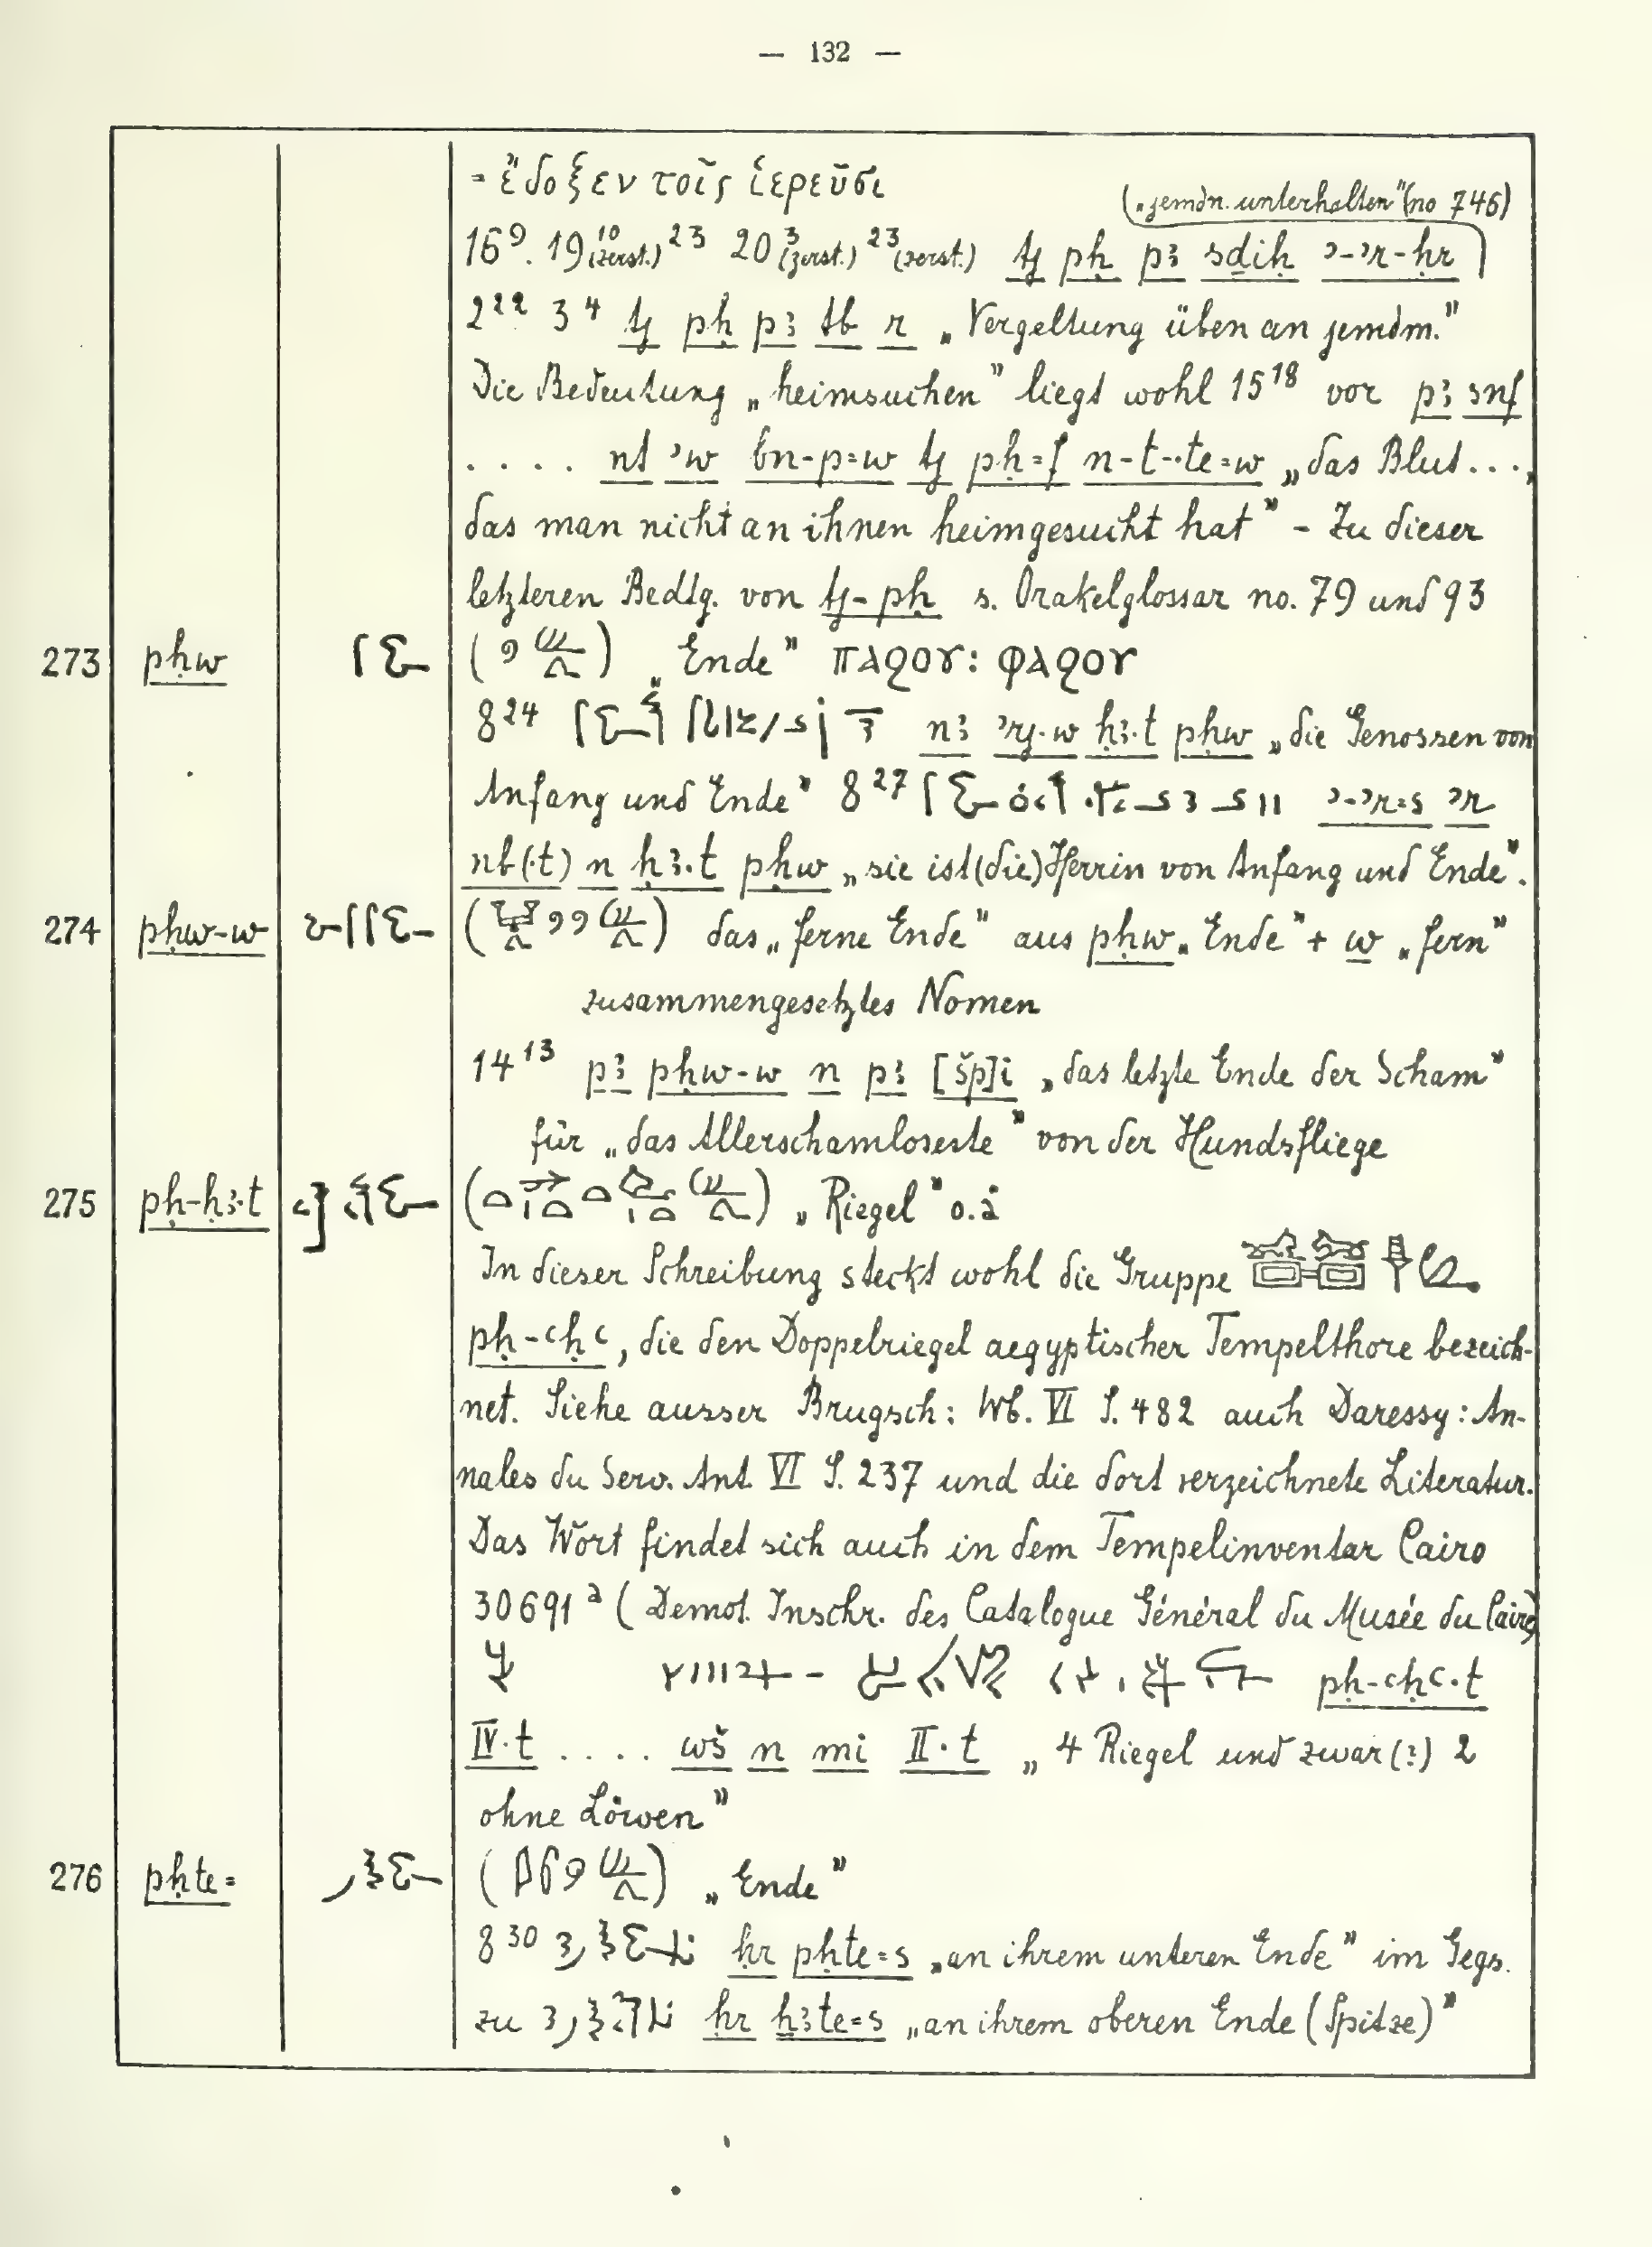 — 132 —
= ἔδοξεν τοῖς ἱερεῦσι
(„jemdn. unterhalten" (no 746)
16⁹. 19¹⁰ (zerst.) ²³ 20³ (zerst.) ²³ (zerst.) tj pḥ pꜣ sdiḥ ꜣ-ꜣr-ḥr
2²² 3⁴ tj pḥ pꜣ tb r „Vergeltung üben an jemdm."
Die Bedeutung „heimsuchen" liegt wohl 15¹⁸ vor pꜣ snf
.... nt ꜣw bn-p=w tj pḥ=f n-t-·te=w „das Blut ...,
das man nicht an ihnen heimgesucht hat" – Zu dieser
letzteren Bedtg. von tj-pḥ s. Orakelglossar no. 79 und 93
273 pḥw ( ) „Ende" ⲡⲁϩⲟⲩ: ⲫⲁϩⲟⲩ
8²⁴ nꜣ ꜣrj·w ḥꜣ·t pḥw „die Genossen von
Anfang und Ende" 8²⁷ ꜣ-ꜣr=s ꜣr
nb(·t) n ḥꜣ·t pḥw „sie ist (die) Herrin von Anfang und Ende".
274 pḥw-w ( ) das „ferne Ende" aus pḥw „Ende" + w „fern"
zusammengesetztes Nomen
14¹³ pꜣ pḥw-w n pꜣ [šp]i „das letzte Ende der Scham"
für „das Allerschamloseste" von der Hundsfliege
275 pḥ-ḥꜣ·t ( ) „Riegel" o.ä
In dieser Schreibung steckt wohl die Gruppe
pḥ-ꜥḥꜥ, die den Doppelriegel aegyptischer Tempelthore bezeich-
net. Siehe ausser Brugsch: Wb. VI S. 482 auch Daressy: An-
nales du Serv. Ant. VI S. 237 und die dort verzeichnete Literatur.
Das Wort findet sich auch in dem Tempelinventar Cairo
30691ᵃ (Demot. Inschr. des Catalogue Général du Musée du Caire)
pḥ-ꜥḥꜥ·t
IV·t .... wš n mi II·t „4 Riegel und zwar(?) 2
ohne Löwen"
276 pḥte= ( ) „Ende"
8³⁰ ḥr pḥte=s „an ihrem unteren Ende" im Gegs.
zu ḥr ḥꜣte=s „an ihrem oberen Ende (Spitze)"